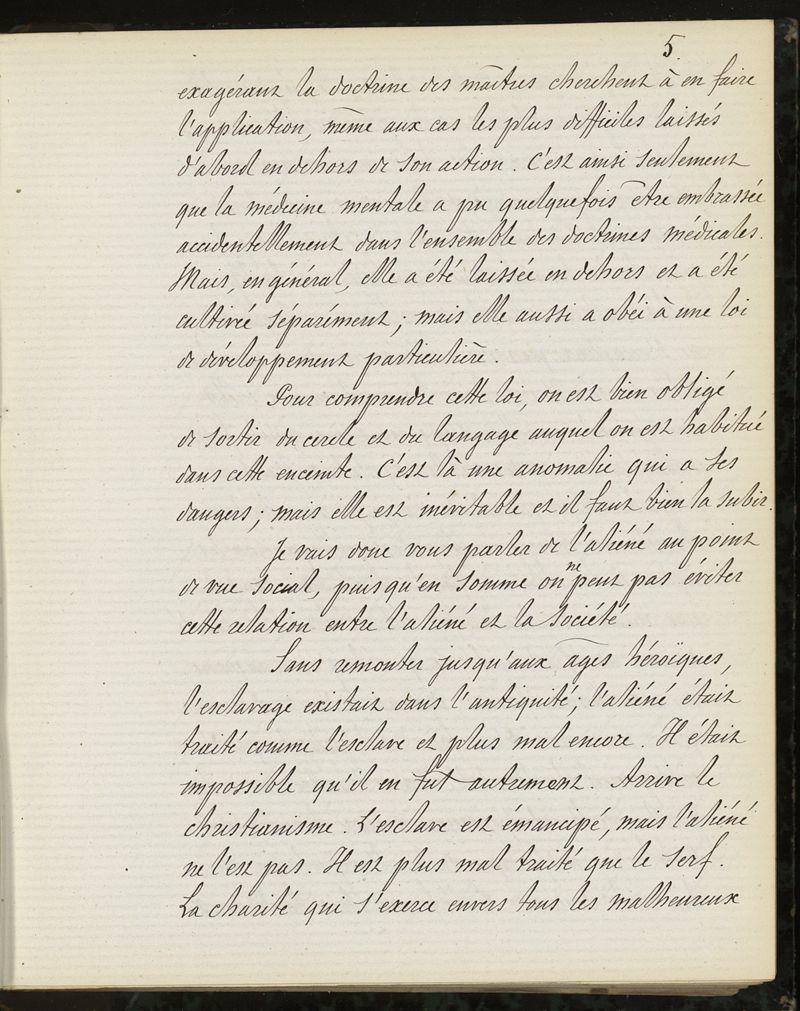 5
exagérant la doctrine des maîtres cherchent à en faire
l'application, même aux cas les plus difficiles laissés
d'abord en dehors de son action. C'est ainsi seulement
que la médecine mentale a pu quelquefois être embrassée
accidentellement dans l'ensemble des doctrines médicales.
Mais, en général, elle a été laissée en dehors et a été
cultivée séparément; mais elle aussi a obéi à une loi
de développement particulière.
Pour comprendre cette loi, on est bien obligé
de sortir du cercle et du langage auquel on est habitué
dans cette enceinte. C'est là une anomalie qui a ses
dangers; mais elle est inévitable et il faut bien la subir.
Je vais donc vous parler de l'aliéné au point
de vue social, puisqu'en somme on ne peut pas éviter
cette relation entre l'aliéné et la société.
Sans remonter jusqu'aux âges héroïques,
l'esclavage existait dans l'antiquité; l'aliéné était
traité comme l'esclave et plus mal encore. Il était
impossible qu'il en fut autrement. Arrive le
christianisme. L'esclave est émancipé, mais l'aliéné
ne l'est pas. Il est plus mal traité que le serf.
La charité qui s'exerce envers tous les malheureux